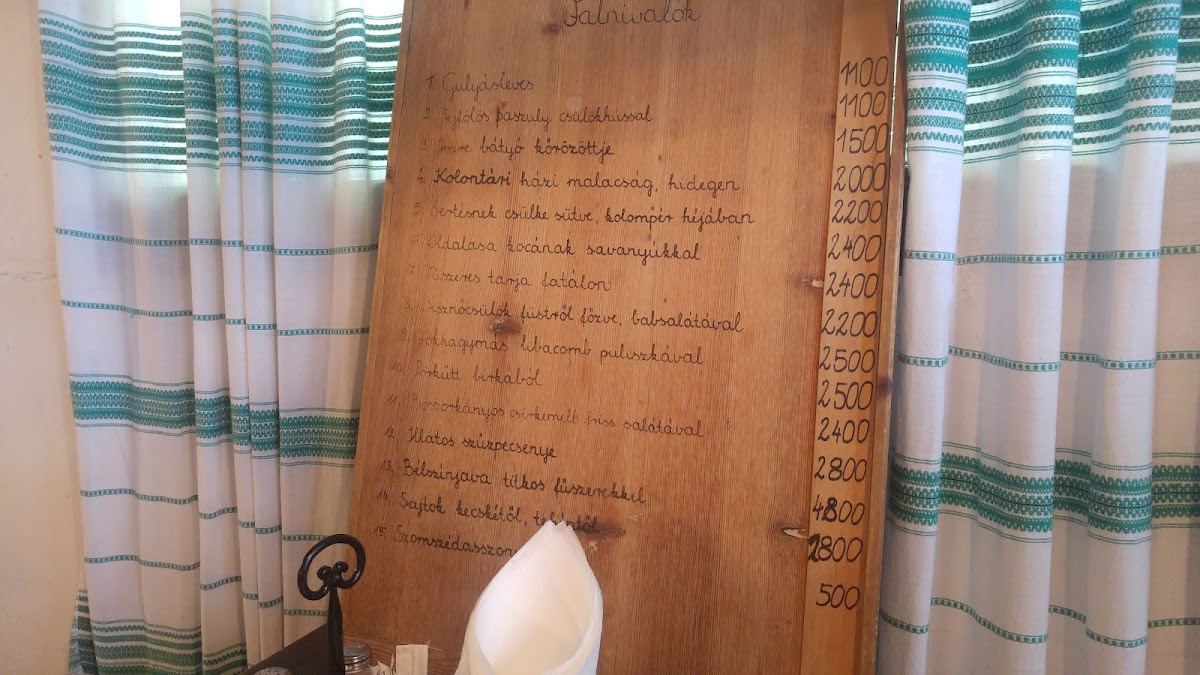 Falnivalók
1. Gulyásleves 1100
2. Fejtölős paszuly csülökhússal 1100
3. Imre bátyó körözöttje 1500
4. Kolontári házi malacság, hidegen 2000
5. Sertésnek csülke sütve, kolompér héjában 2200
6. Oldalasa kocának savanyúkkal 2400
7. Fűszeres tarja fatálon 2400
8. Disznócsülök füstről főzve, babsalátával 2200
9. libacomb puliszkával 2500
10. Pörkütt birkából 2500
11. Boszorkányos csirkemell friss salátával 2400
12. Illatos szűzpecsenye 2800
13. Bélszínjava titkos fűszerekkel 4800
14. Sajtok kecskétől, tehéntől 2800
15. 500